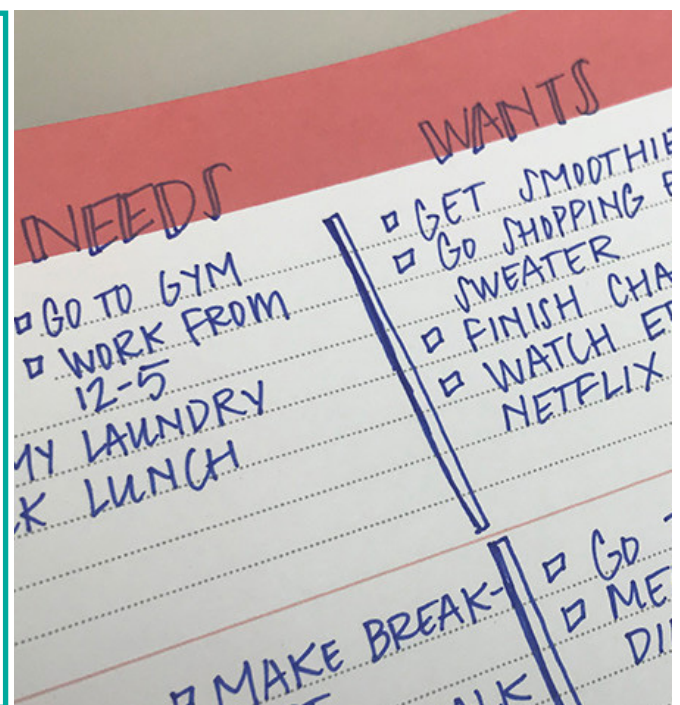 NEEDS
GO TO GYM
WORK FROM
12-5
MY LAUNDRY
LUNCH
WANTS
GET SMOOTHIE
GO SHOPPING
SWEATER
FINISH
WATCH
NETFLIX
MAKE BREAK-
GO